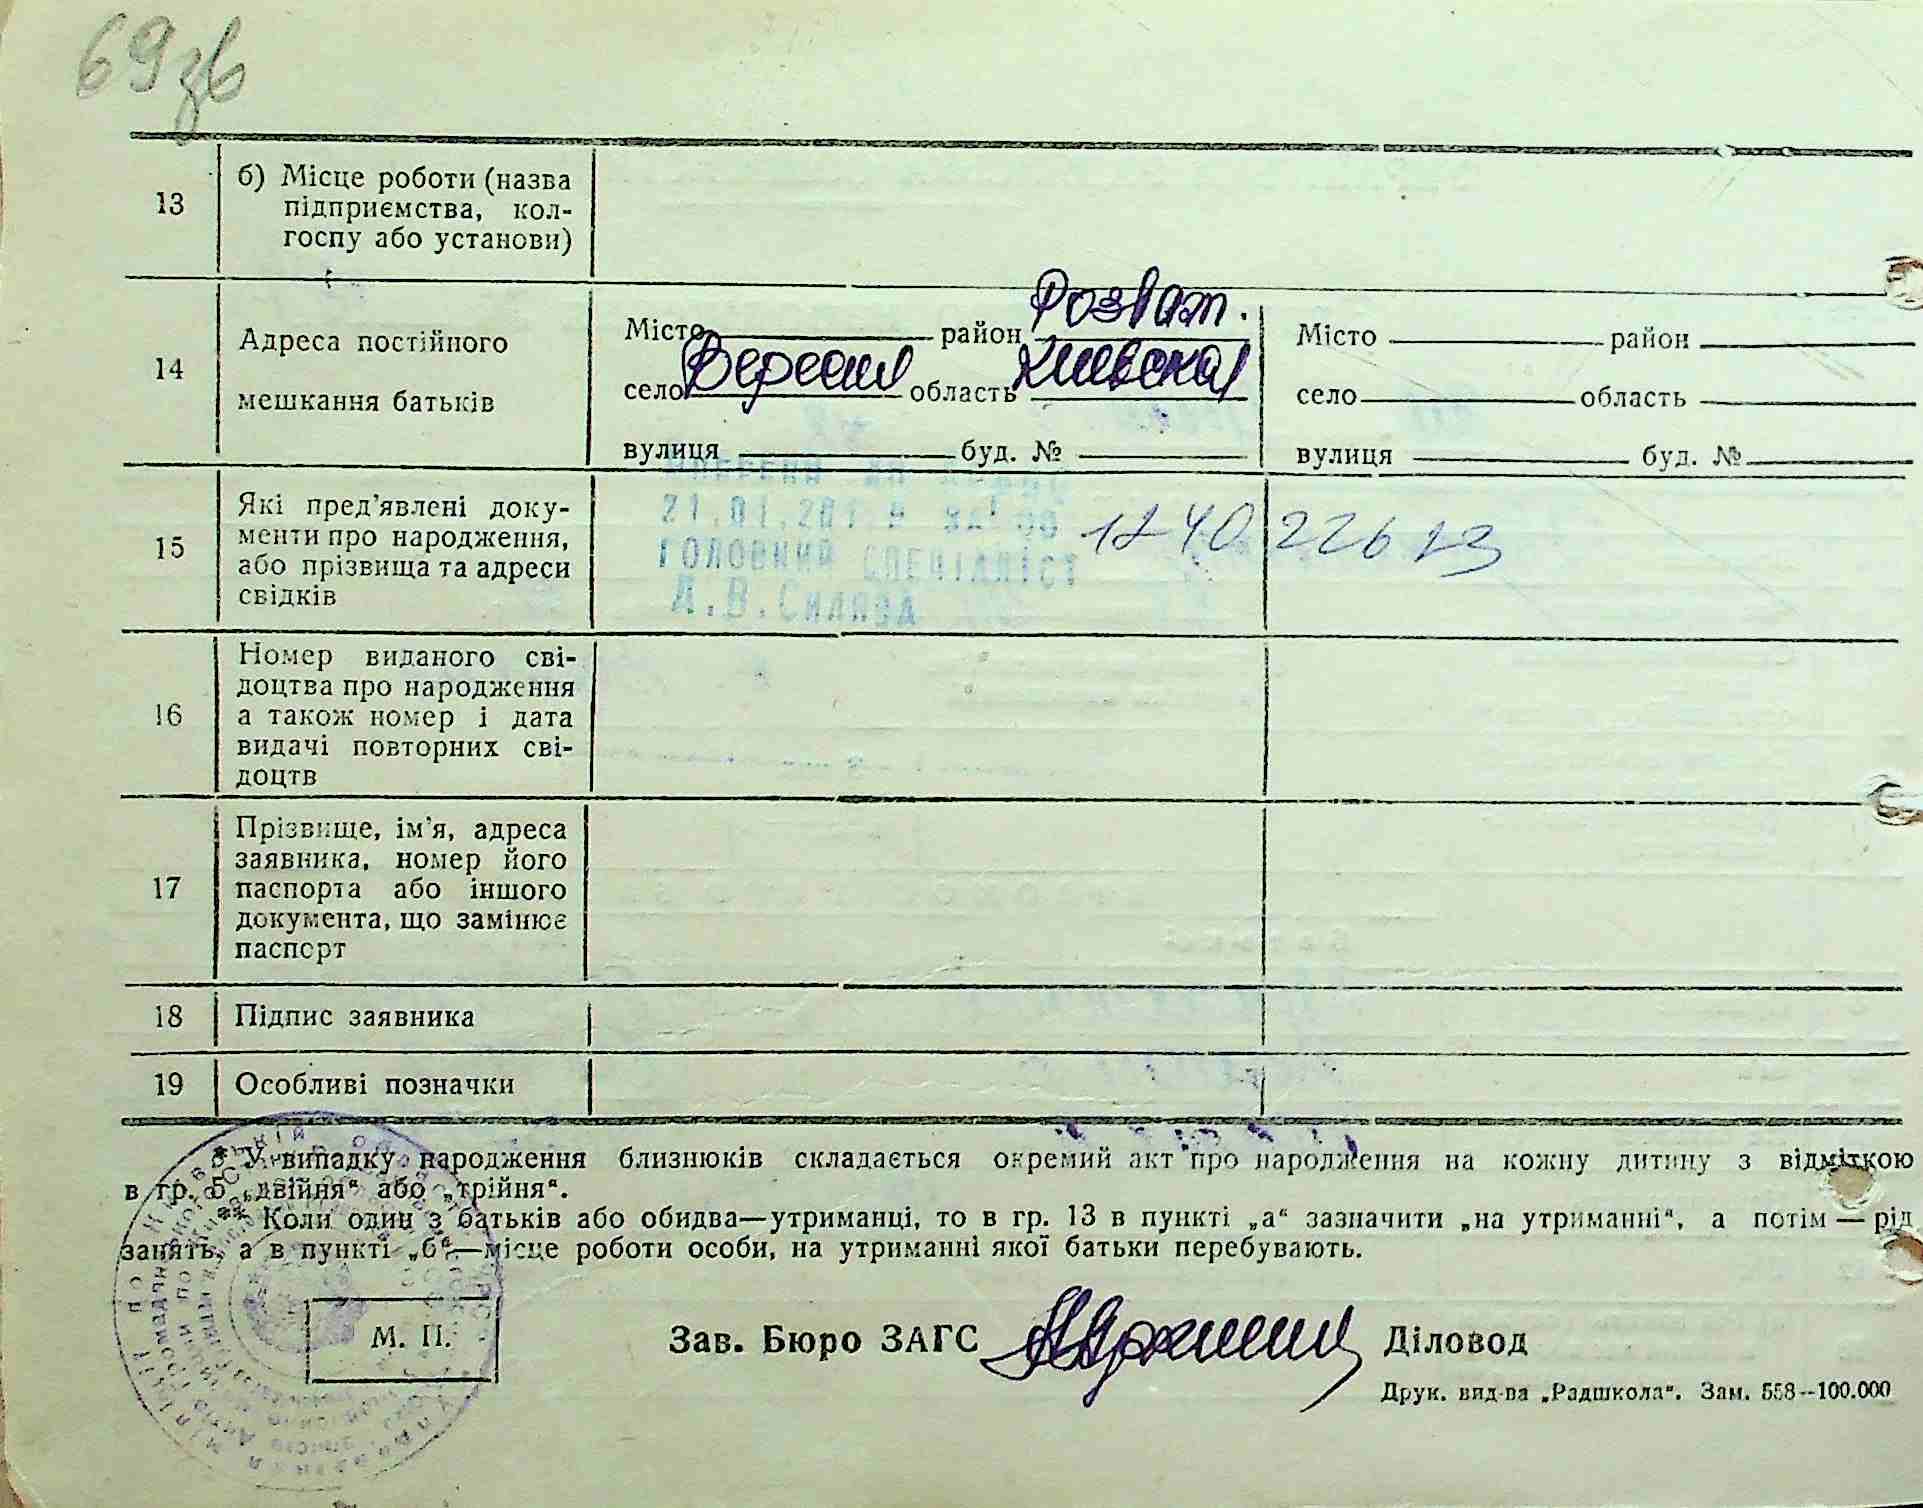 69зв
13 б) Місце роботи (назва
підприємства, кол-
госпу або установи)
14 Адреса постійного
мешкання батьків
Місто район Розваж.
село область Киевская
вулиця буд. №
Місто район
село область
вулиця буд. №
15 Які пред'явлені доку-
менти про народження,
або прізвища та адреси
свідків
21.01.201
ГОЛОВНИЙ СПЕЦІАЛІСТ
1240 226 13
16 Номер виданого сві-
доцтва про народження
а також номер і дата
видачі повторних сві-
доцтв
17 Прізвище, ім'я, адреса
заявника, номер його
паспорта або іншого
документа, що замінює
паспорт
18 Підпис заявника
19 Особливі позначки
* У випадку народження близнюків складається окремий акт про народження на кожну дитину з відміткою
в гр. 5 „двійня“ або „трійня“.
** Коли один з батьків або обидва—утриманці, то в гр. 13 в пункті „а“ зазначити „на утриманні“, а потім — рід
занять, а в пункті „б“—місце роботи особи, на утриманні якої батьки перебувають.
М. П.
Зав. Бюро ЗАГС Діловод
Друк. вид-ва „Радшкола“. Зам. 558—100.000